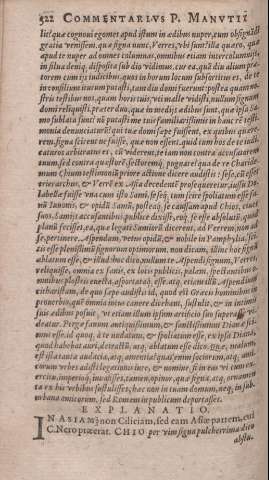 522 COMMENTARIVS P. MANVTII
lit? quæ cognoui egomet apud istum in ædibus nuper, cum obsignādi
gratia venissem. quæ signa nunc, Verres, vbi sunt? illa quæro, quæ
apud te nuper ad omnes columnas, omnibus etiam intercolumniis,
in silua denique disposita sub diu vidimus. cur ea, quā diu alium præ-
torem cum iis iudicibus, quos in horum locum subsortitus es, de te
in consilium iturum putasti, tam diu domi fuerunt: postea quam no-
stris testibus nos, quam horis tuis, vti malle vidisti, nullum signum
domi reliquisti, præter duo, quæ in mediis ædibus sunt, quæ ipsa Sa-
mo sublata sunt? nō putasti me tuis familiarissimis in hanc rē testi-
monia denuntiaturū, qui tuæ domi sæpe fuissent, ex quibus quære-
rem, signa scirentne fuisse, quæ non essent. quid tum hos de te iudi-
caturos arbitratus es, cū viderent, te iam non contra accusatorem
suum, sed contra quæstorē, sectoremque pugnare? qua de re Charide-
mum Chium testimoniū priore actione dicere audistis: sese, cū esset
trierarchus, & Verrē ex Asia decedentē prosequeretur, iussu Do-
labellæ fuisse vna cum isto Sami, seseque tum scire spoliatum esse fa-
nū Iunonis, & opidū Samū, posteaque se causam apud Chios, ciues
suos, Samiis accusantibus publice dixisse, eoque se esse absolutū, quod
planū fecisset, ea, quæ legati Samiorū dicerent, ad Verrem, non ad
se, pertinere. Aspendum, vetus opidū, & nobile in Pamphylia, sci-
tis esse plenissimū signorum optimorum. non dicam, illinc hoc signū
ablatum esse, & illud: hoc dico, nullum te Aspendi signum, Verres,
reliquisse, omnia ex fanis, ex locis publicis, palam, spectantibus o-
mnibus, plostris euecta, asportataque esse. atque etiam illū Aspendium
citharistam, de quo sæpe audistis id, quod est Græcis hominibus in
prouerbio, quē omnia intus canere dicebant, sustulit, & in intimis
suis ædibus posuit, vt etiam illum ipsum artificio suo superasse vi-
deatur. Pergæ fanum antiquissimum, & sanctissimum Dianæ sci-
mus esse. id quoque à te nudatum, & spoliatum esse, ex ipsa Diana,
quod habebat auri, detractū, atque ablatum esse dico. quæ, malum,
est ista tanta audacia, atque amentia? quas enim sociorum, atque ami-
corum vrbes adisti legationis iure, & nomine, si in eas vi cum ex-
ercitu, imperioque inuasisses, tamen, opinor, quæ signa, atque ornamen-
ta ex his vrbibus sustulisses, hæc non in tuam domum, neque in sub-
urbana amicorum, sed Romam in publicum deportasses.
EXPLANATIO.
IN ASIAM] non Ciliciam, sed eam Asiæ partem, cui
C. Nero præerat. CHIO per vim signa pulcherrima dico
abstu-